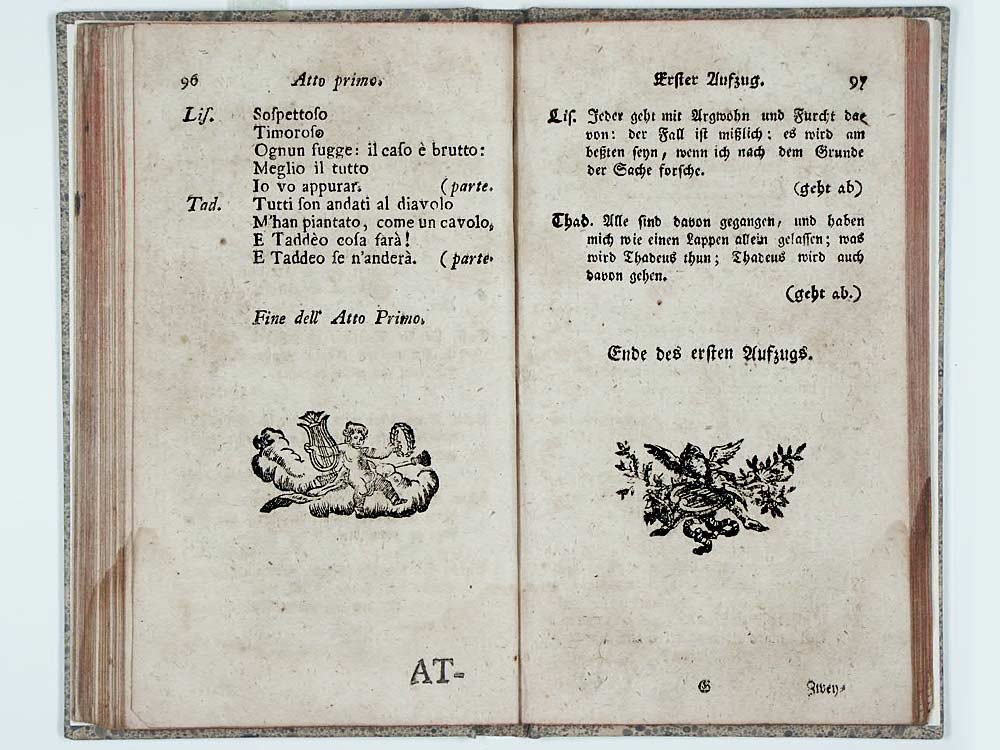 96 Atto primo.
Liſ. Soſpettoſo
Timoroſo
Ognun fugge: il caſo è brutto:
Meglio il tutto
Io vo appurar. (parte.
Tad. Tutti ſon andati al diavolo
M'han piantato, come un cavolo,
E Taddèo coſa farà!
E Taddeo ſe n'anderà. (parte.
Fine dell' Atto Primo.
AT-
Erſter Aufzug. 97
Liſ. Jeder geht mit Argwohn und Furcht da-
von: der Fall iſt mißlich: es wird am
beßten ſeyn, wenn ich nach dem Grunde
der Sache forſche.
(geht ab)
Thad. Alle ſind davon gegangen, und haben
mich wie einen Lappen allein gelaſſen; was
wird Thadeus thun; Thadeus wird auch
davon gehen.
(geht ab.)
Ende des erſten Aufzugs.
G Zwey-